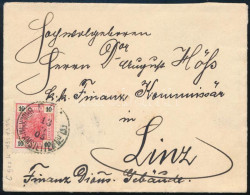 Hochwolgeboren
Herrn Dor August Höß
k.k. Finanz Kommissär
in
Linz
Finanz Dions. Gebäude.
10 10